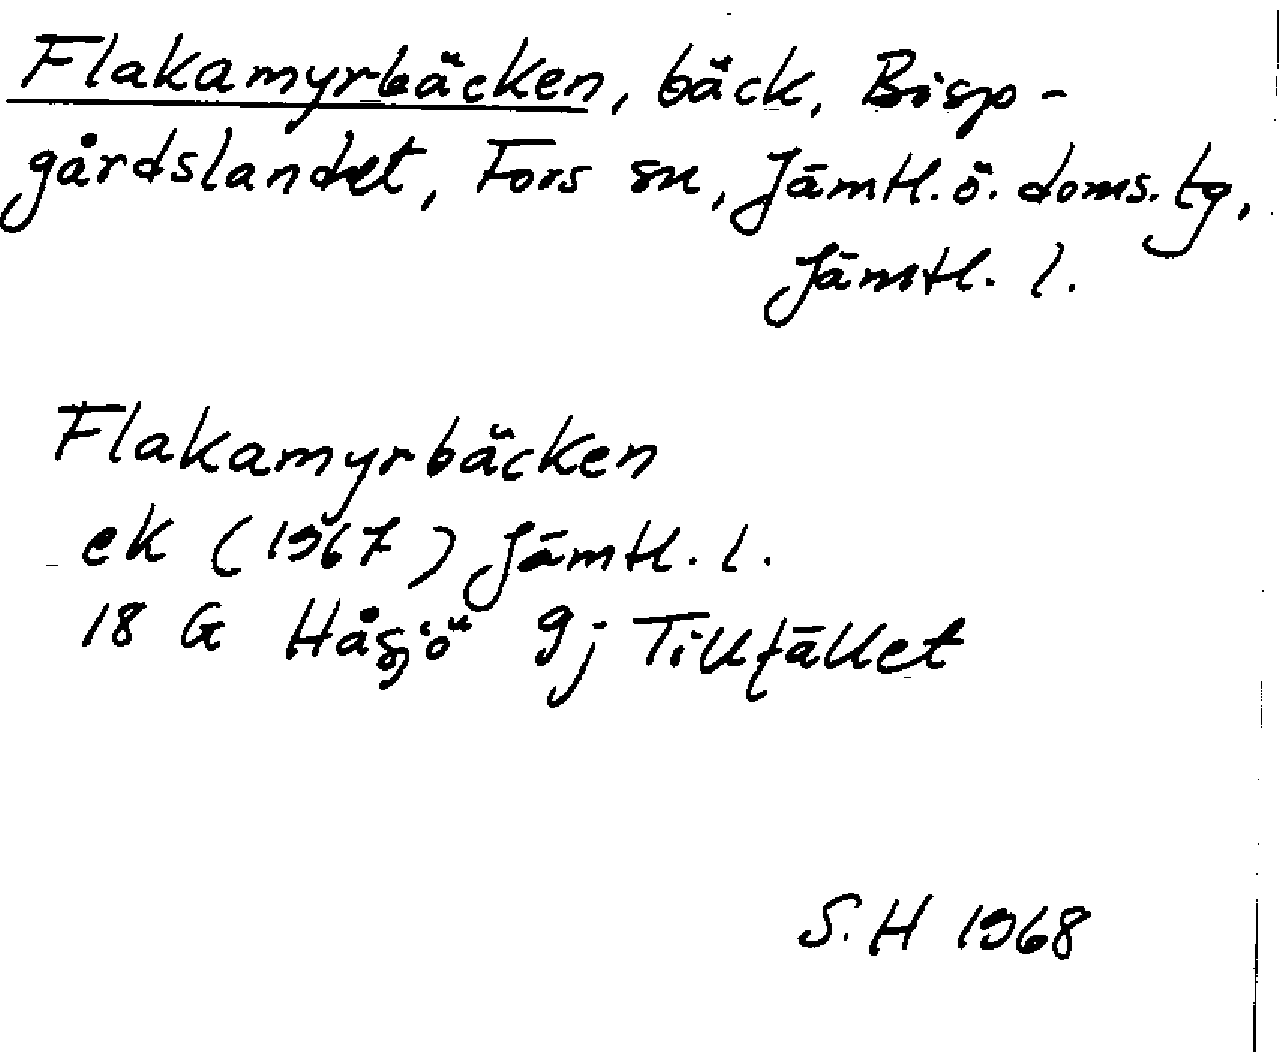 Flakamyrbäcken, bäck, Bisp-
gårdslandet, Fors sn, Jämtl. ö. doms. tg,
Jämtl. l.
Flakamyrbäcken
ek (1967) Jämtl. l.
18 G Håsjö 9j Tillfället
S. H 1968